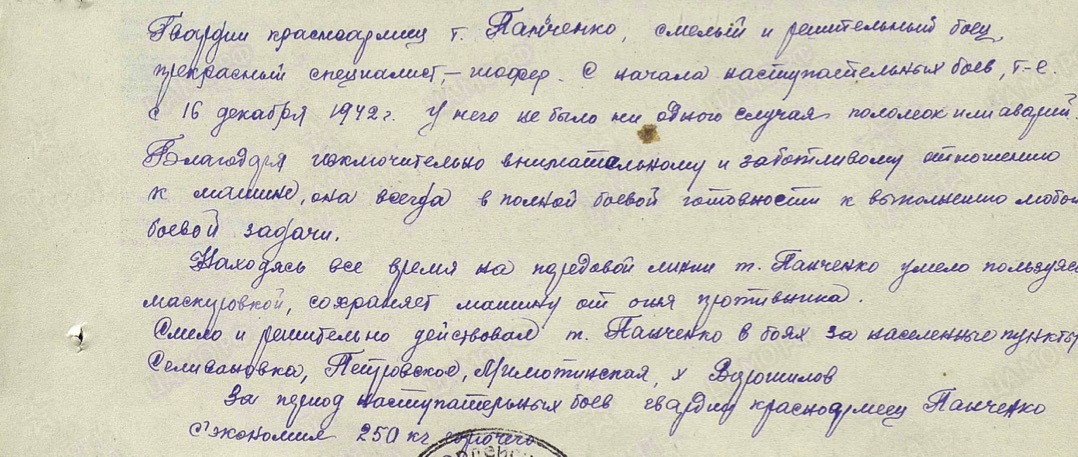 Гвардии красноармеец т. Панченко, смелый и решительный боец,
прекрасный специалист, – шофер. С начала наступательных боев, т-е.
с 16 декабря 1942 г. у него не было ни одного случая поломок или аварий.
Благодаря исключительно внимательному и заботливому отношению
к машине, она всегда в полной боевой готовности к выполнению любой
боевой задачи.
Находясь все время на передовой линии т. Панченко умело пользуясь
маскировкой, сохраняет машину от огня противника.
Смело и решительно действовал т. Панченко в боях за населенные пункты
Селивановка, Петровское, х Ворошилов
За период наступательных боев гвардии красноармеец Панченко
с'экономил 250 кг горючего